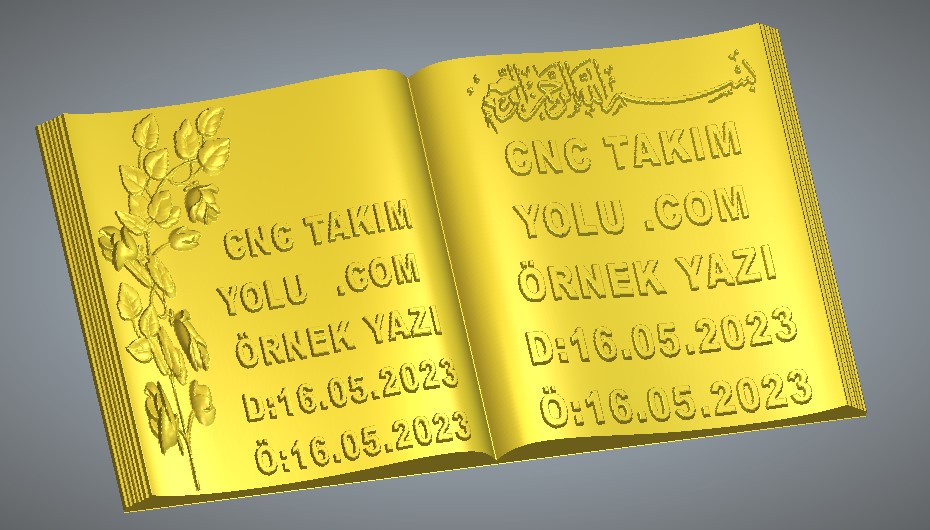 CNC TAKIM
YOLU .COM
ÖRNEK YAZI
D:16.05.2023
Ö:16.05.2023
بسم الله الرحمن الرحيم
CNC TAKIM
YOLU .COM
ÖRNEK YAZI
D:16.05.2023
Ö:16.05.2023